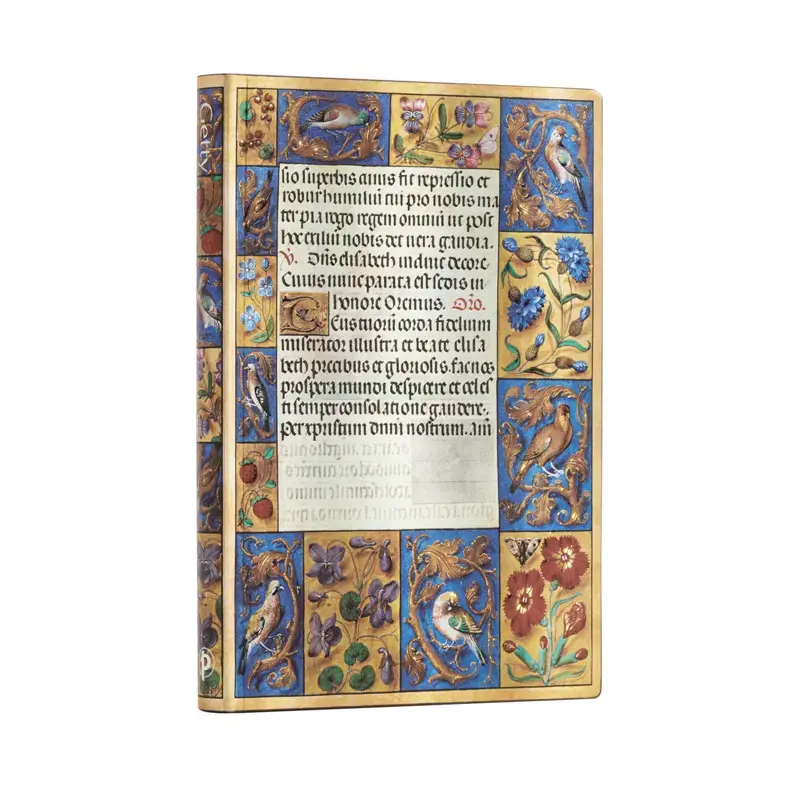 Getty
sio superbis cuius fit repressio et
robur humiliū cui pro nobis ma
ter pia rogo regem omniū ut post
hoc exiliū nobis det uera gaudia.
V. Dn̄s elisabeth induit decore
Cuius nunc parata est sedis in
honore Oremus. Oro.
Deus tuorū corda fidelium
miserator illustra et beate elisa
beth precibus et gloriosis. fac nos
prospera mundi despicere et celes
ti semper consolatione gaudere.
Per xpristum dn̄m nostrum. am̄